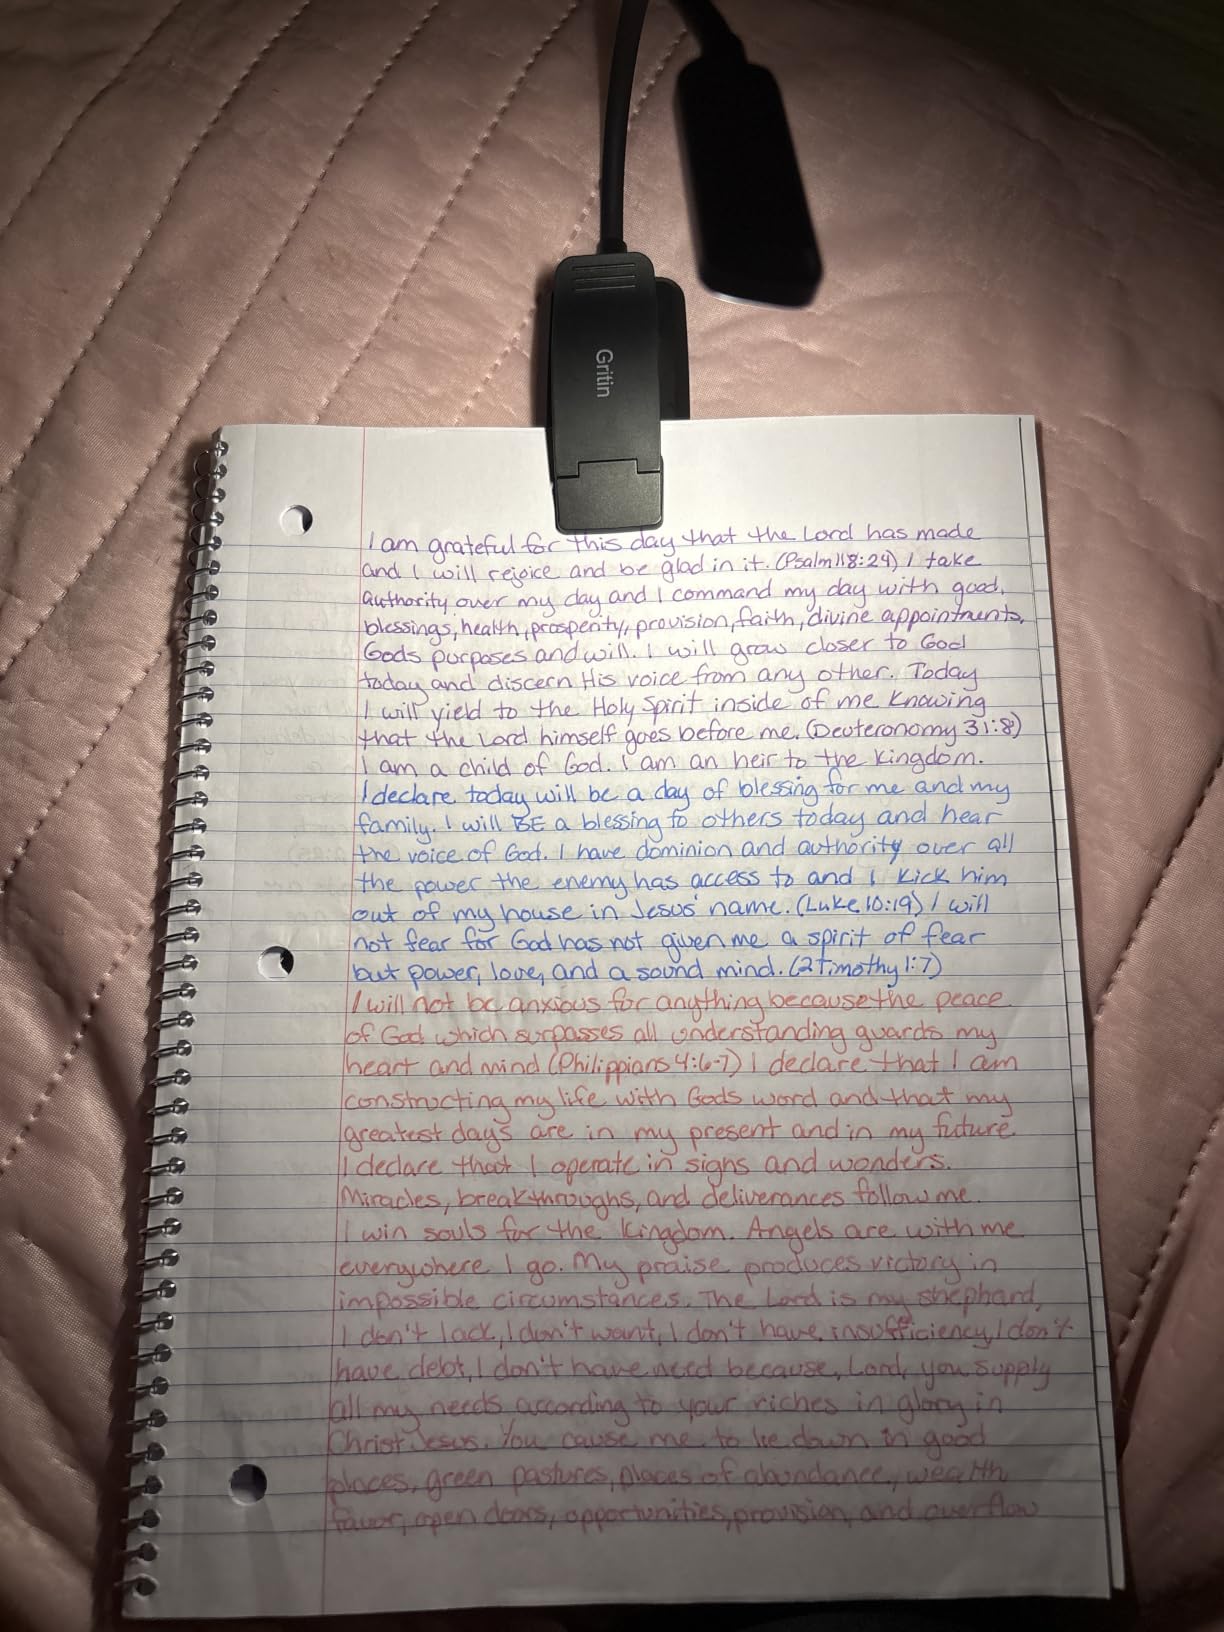 Gritin
I am grateful for this day that the Lord has made
and I will rejoice and be glad in it. (Psalm 118:24) I take
authority over my day and I command my day with good,
blessings, health, prosperity, provision, faith, divine appointments,
Gods purposes and will. I will grow closer to God
today and discern His voice from any other. Today
I will yield to the Holy Spirit inside of me Knowing
that the Lord himself goes before me. (Deuteronomy 31:8)
I am a child of God. I am an heir to the Kingdom.
I declare today will be a day of blessing for me and my
family. I will BE a blessing to others today and hear
the voice of God. I have dominion and authority over all
the power the enemy has access to and I Kick him
out of my house in Jesus' name. (Luke 10:19) I will
not fear for God has not given me a spirit of fear
but power, love, and a sound mind. (2 Timothy 1:7)
I will not be anxious for anything because the peace
of God which surpasses all understanding guards my
heart and mind (Philippians 4:6-7) I declare that I am
constructing my life with Gods word and that my
greatest days are in my present and in my future
I declare that I operate in signs and wonders.
Miracles, breakthroughs, and deliverances follow me.
I win souls for the Kingdom. Angels are with me
everywhere I go. My praise produces victory in
impossible circumstances. The Lord is my shephard,
I don't lack, I don't want, I don't have insufficiency, I don't
have debt, I don't have need because, Lord, you supply
all my needs according to your riches in glory in
Christ Jesus. You cause me to lie down in good
places, green pastures, places of abundance, wealth
favor, open doors, opportunities, provision, and overflow